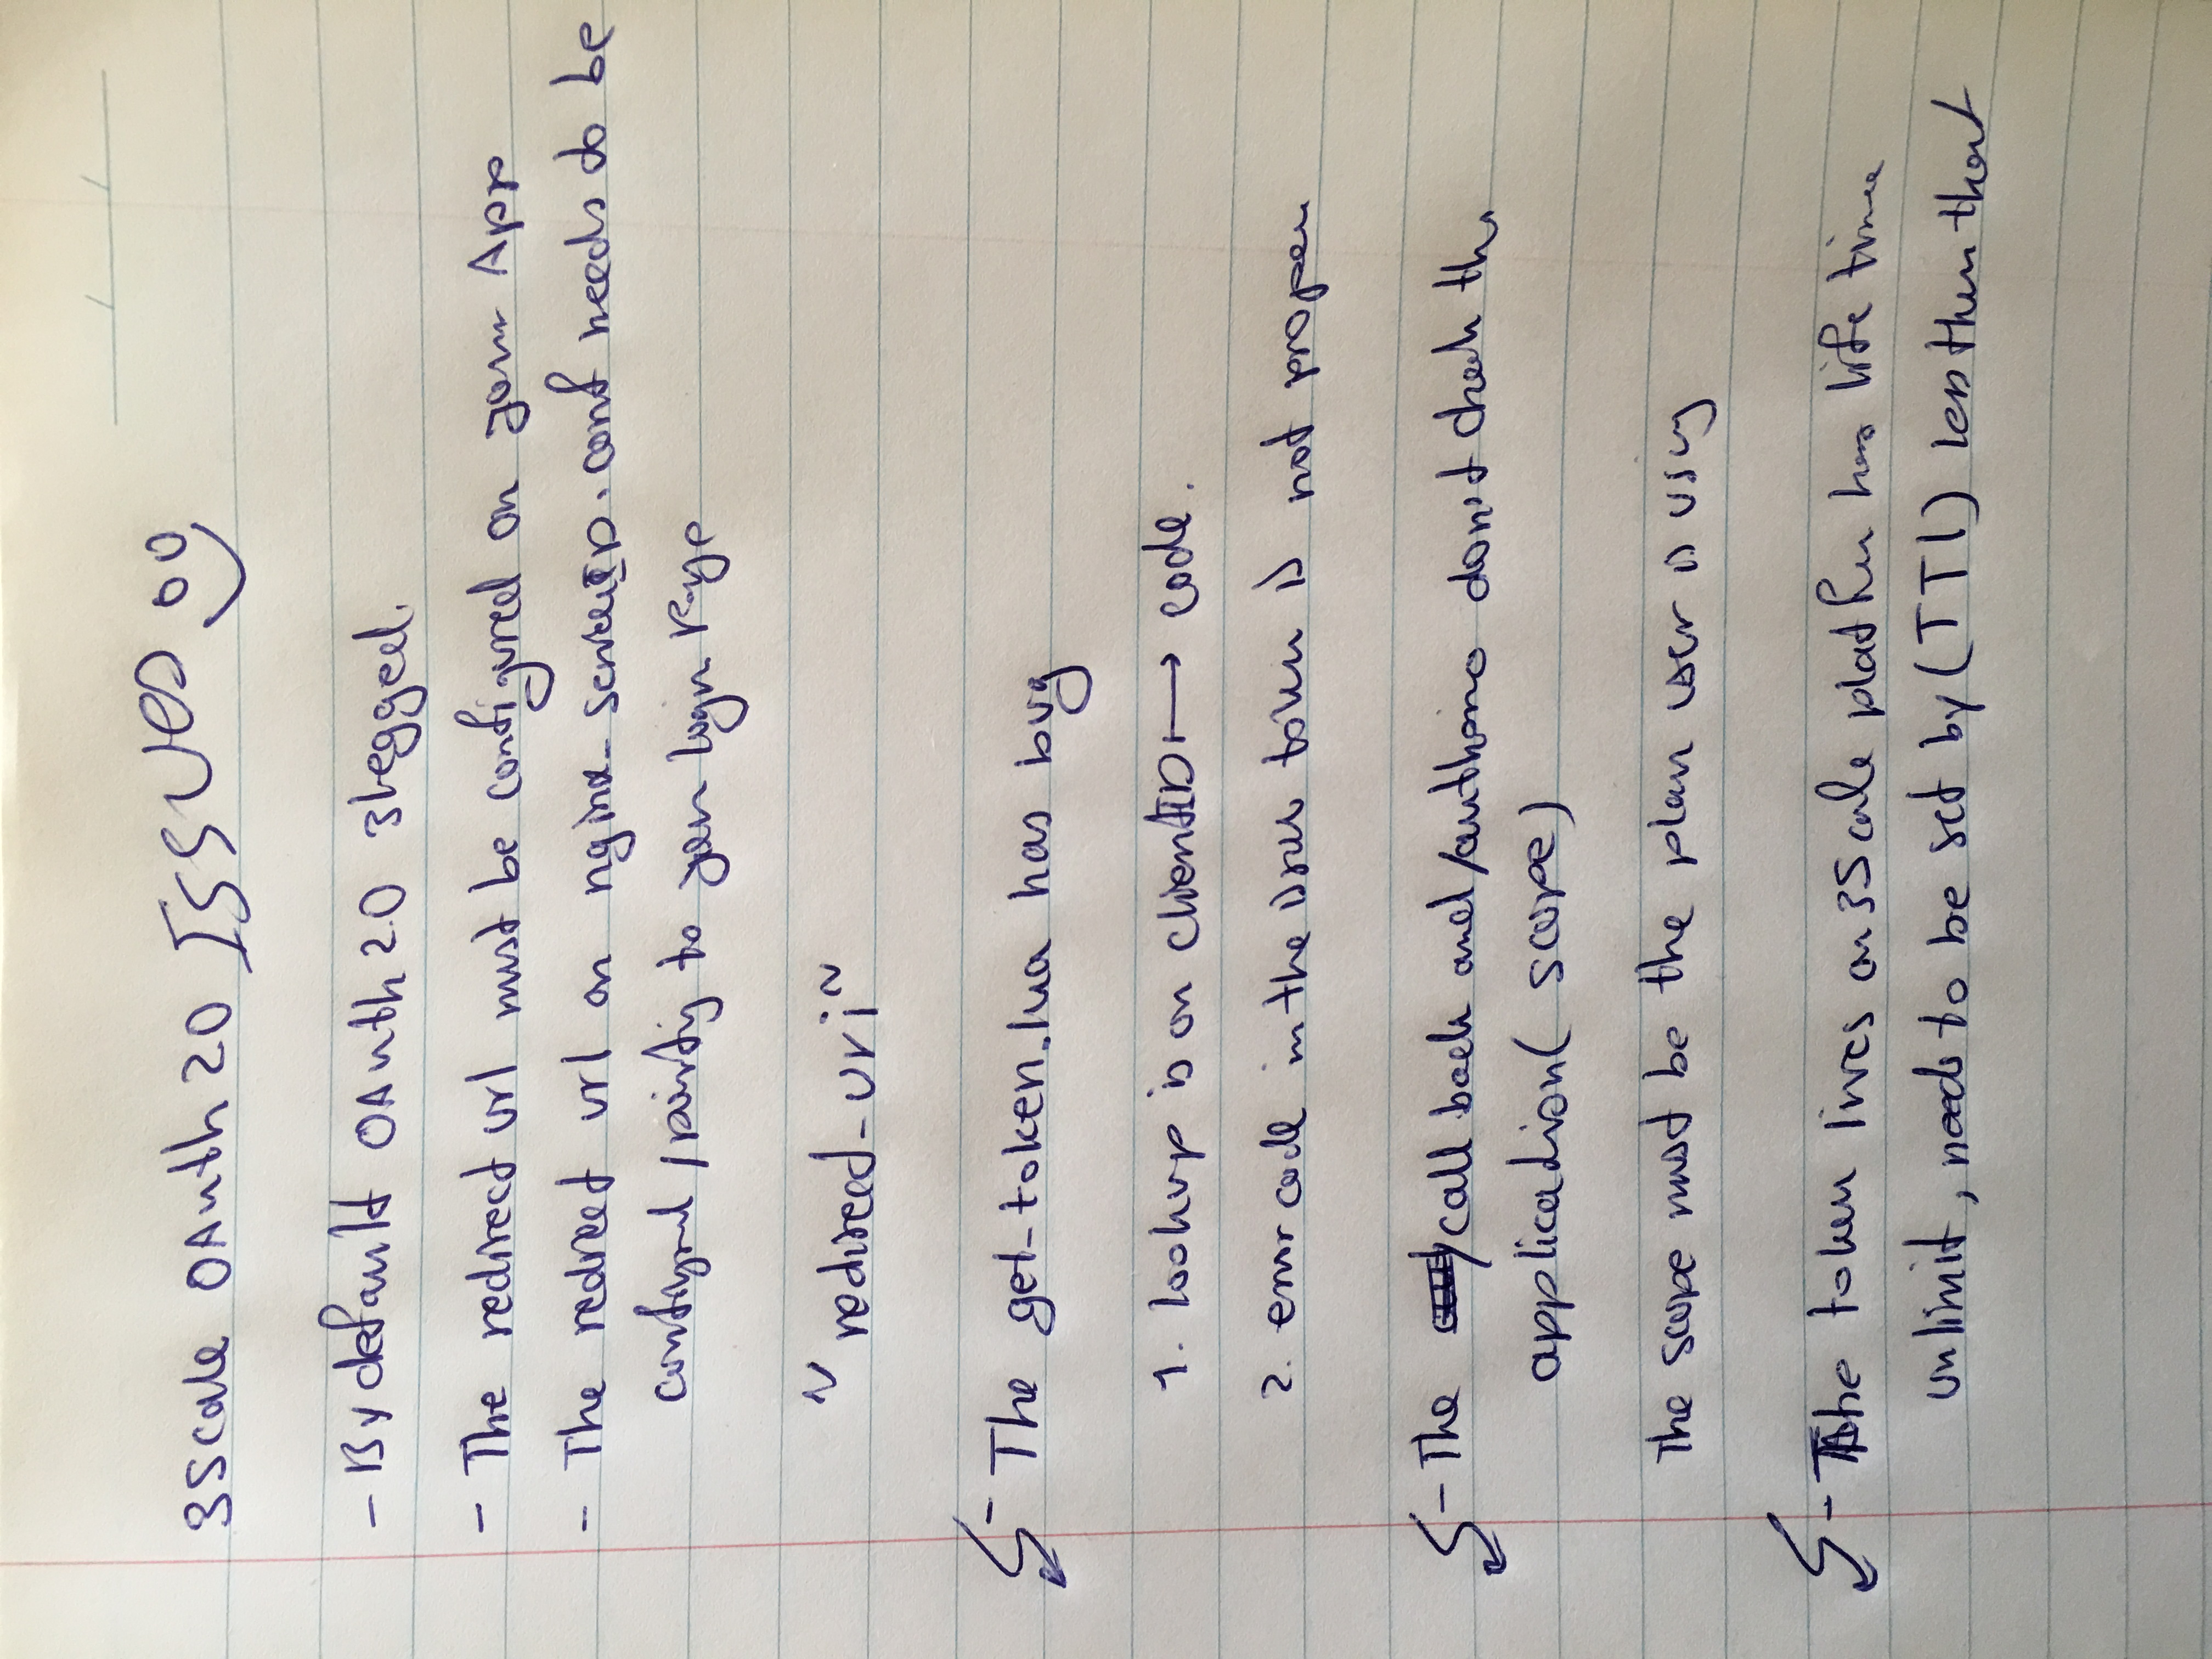 3Scale OAuth 2.0 ISSUES
- By default OAuth 2.0 3legged.
- The redirect url must be configured on your App
- The redirect url on nginx-serviceID.conf needs to be
configured / to your login Page
"redirect-uri"
- The get-token.lua has bug
1. lookup is on clientID ↦ code.
2. error code in the issue token is not proper
- The /callback and /authorize don't check the
application( scope)
The scope must be the plan user is using
- The token lives on 3Scale platform has life time
unlimit, needs to be set by (TTl) less then that